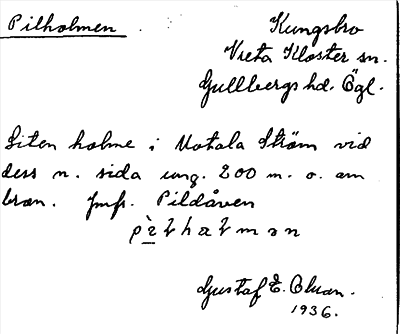 Pilholmen
Kungsbro
Vreta Kloster sn.
Gullbergs hd. Ögl.
Liten holme i Motala Ström vid
dess n. sida ung. 200 m. o. om
bron. Jmfr. Pildåven
Gustaf E.
1936.